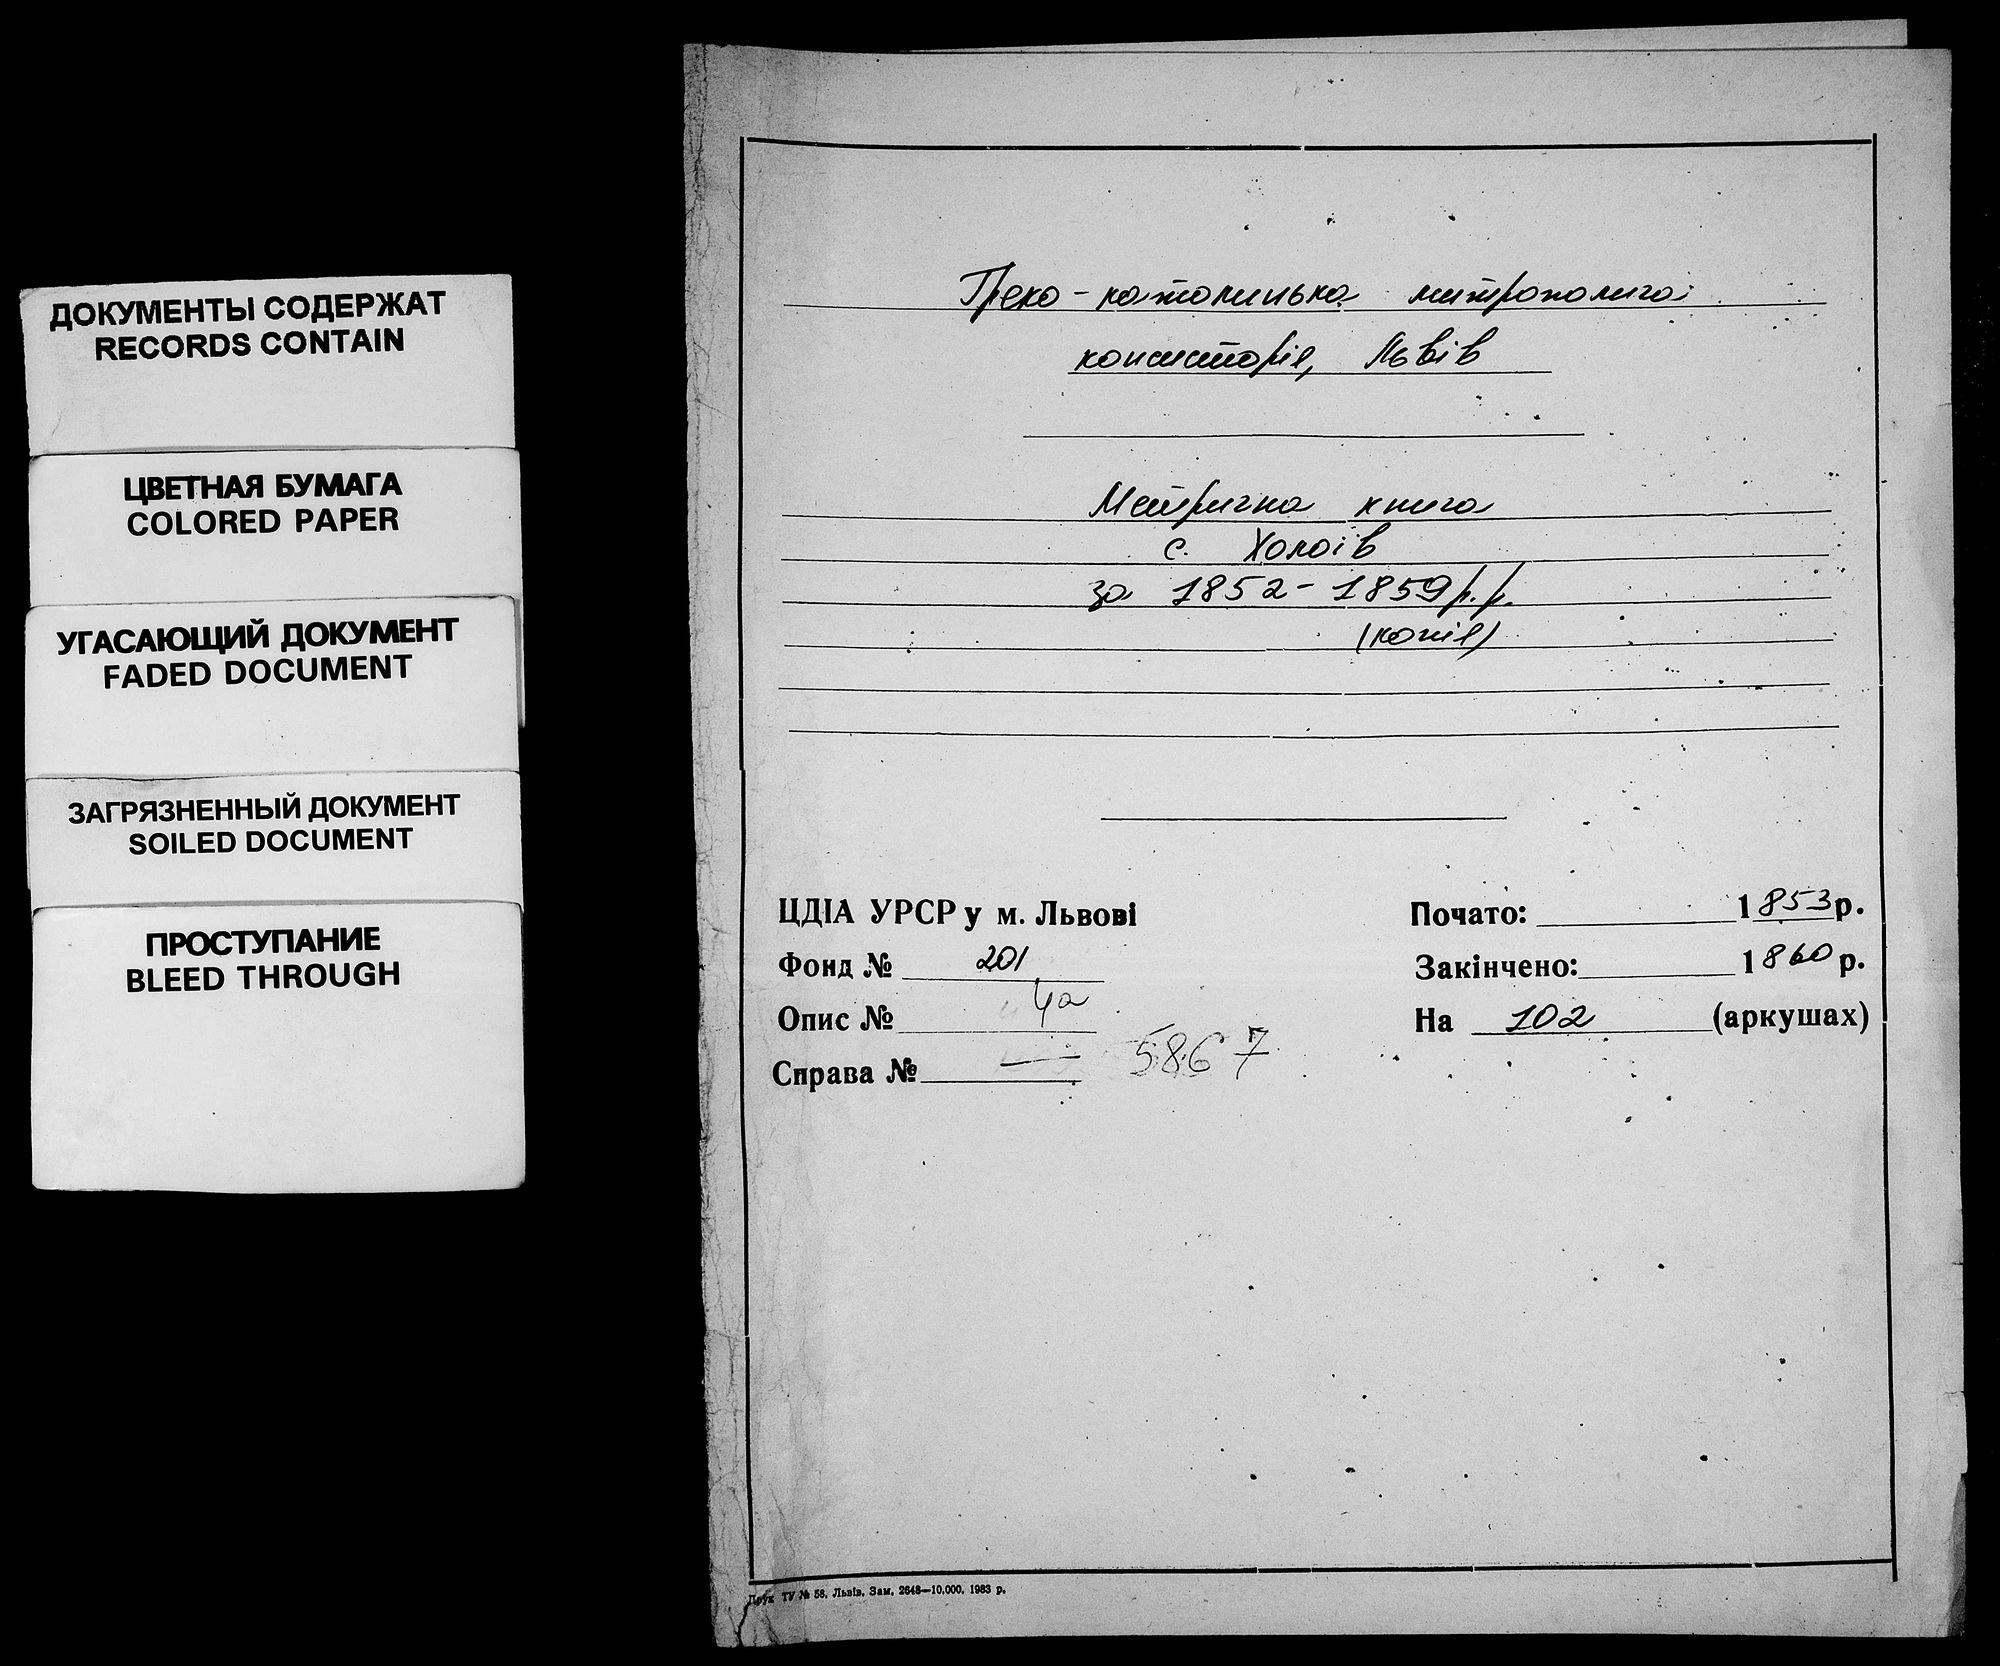 ДОКУМЕНТЫ СОДЕРЖАТ
RECORDS CONTAIN
ЦВЕТНАЯ БУМАГА
COLORED PAPER
УГАСАЮЩИЙ ДОКУМЕНТ
FADED DOCUMENT
ЗАГРЯЗНЕННЫЙ ДОКУМЕНТ
SOILED DOCUMENT
ПРОСТУПАНИЕ
BLEED THROUGH
Греко-католицька митрополича
консисторія, Львів
Метрична книга
с. Холоїв
за 1852-1859 р.р.
(копія)
ЦДІА УРСР у м. Львові
Фонд № 201
Опис № 4а
Справа № — 5867
Почато: 1853 р.
Закінчено: 1860 р.
На 102 (аркушах)
Друк ТУ № 58. Львів. Зам. 2648—10.000. 1983 р.